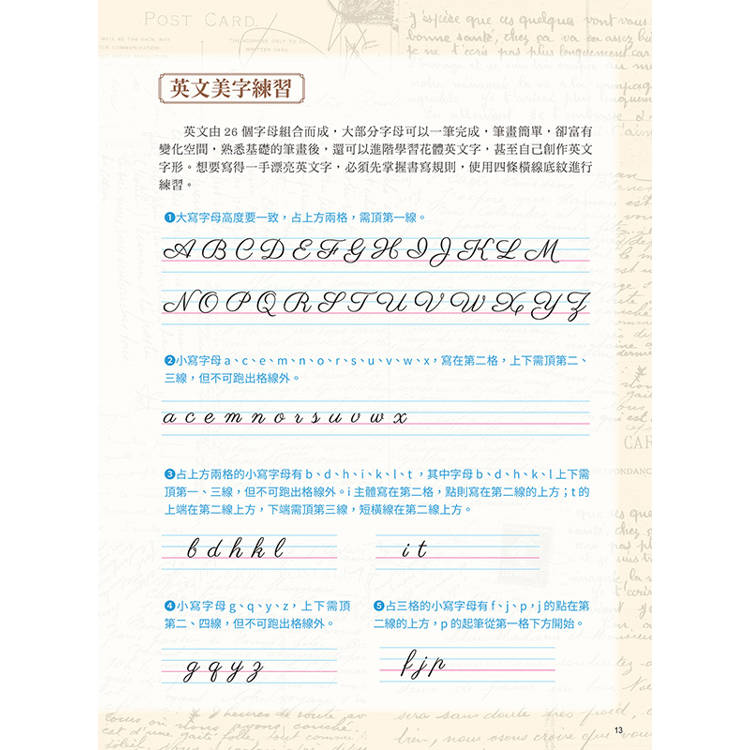 POST CARD
英文美字練習
英文由 26 個字母組合而成，大部分字母可以一筆完成，筆畫簡單，卻富有
變化空間，熟悉基礎的筆畫後，還可以進階學習花體英文字，甚至自己創作英文
字形。想要寫得一手漂亮英文字，必須先掌握書寫規則，使用四條橫線底紋進行
練習。
❶大寫字母高度要一致，占上方兩格，需頂第一線。
A B C D E F G H I J K L M
N O P Q R S T U V W X Y Z
❷小寫字母 a、c、e、m、n、o、r、s、u、v、w、x，寫在第二格，上下需頂第二、
三線，但不可跑出格線外。
a c e m n o r s u v w x
❸占上方兩格的小寫字母有 b、d、h、i、k、l、t ，其中字母 b、d、h、k、l 上下需
頂第一、三線，但不可跑出格線外。i 主體寫在第二格，點則寫在第二線的上方；t 的
上端在第二線上方，下端需頂第三線，短橫線在第二線上方。
b d h k l
i t
❹小寫字母 g、q、y、z，上下需頂
第二、四線，但不可跑出格線外。
g q y z
❺占三格的小寫字母有 f、j、p，j 的點在第
二線的上方，p 的起筆從第一格下方開始。
f j p
13